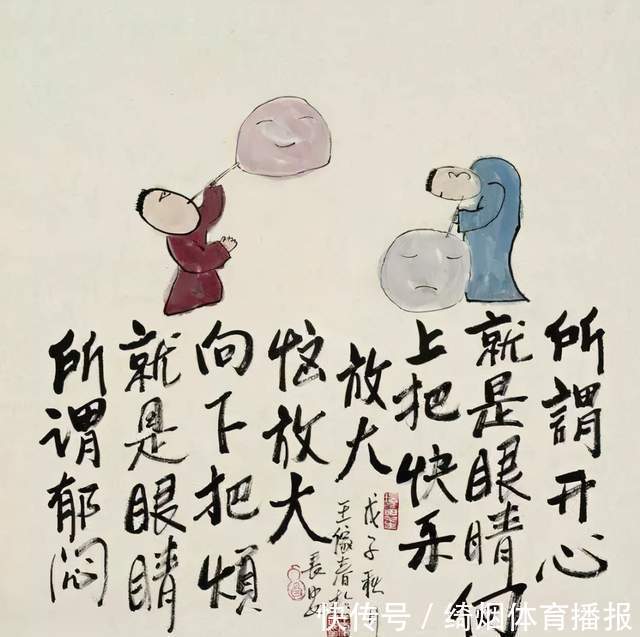 所謂开心
就是眼睛向
上把快乐
放大
所谓郁闷
就是眼睛
向下把煩
恼放大
戊子秋
長安
快传号／绮烟体育播报